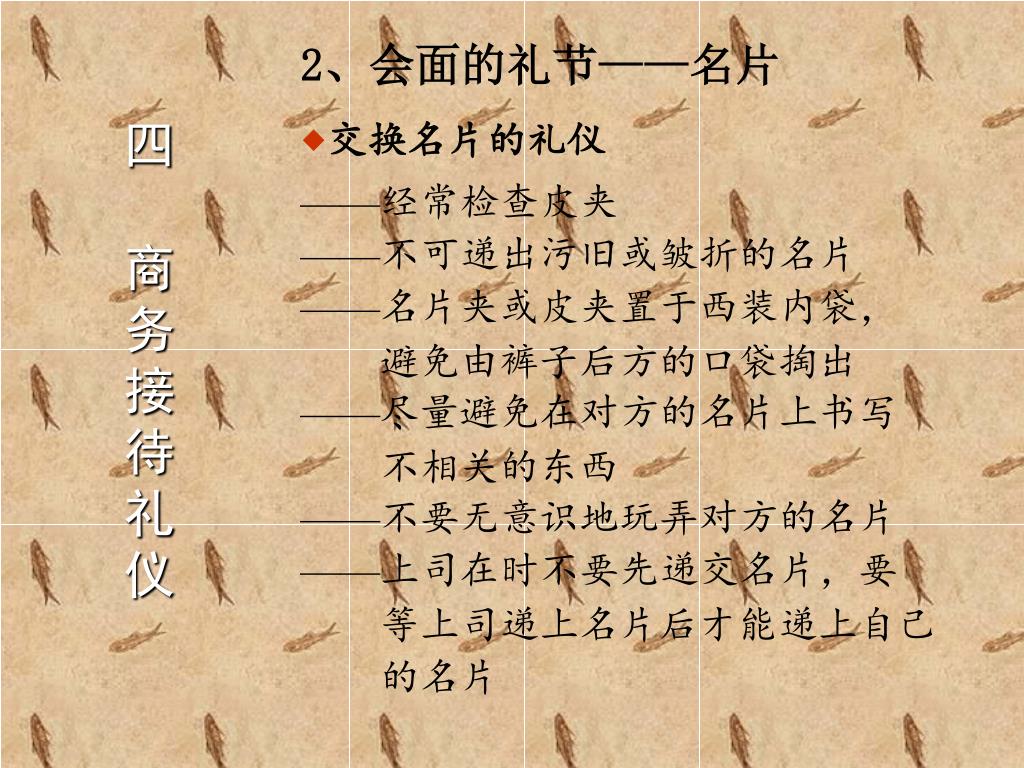 2、会面的礼节——名片
四 商务接待礼仪
◆交换名片的礼仪
——经常检查皮夹
——不可递出污旧或皱折的名片
——名片夹或皮夹置于西装内袋，
避免由裤子后方的口袋掏出
——尽量避免在对方的名片上书写
不相关的东西
——不要无意识地玩弄对方的名片
——上司在时不要先递交名片，要
等上司递上名片后才能递上自己
的名片